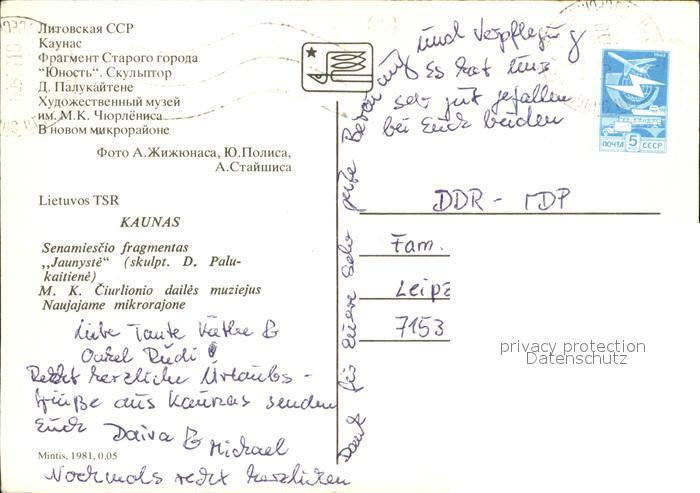 Литовская ССР
Каунас
Фрагмент Старого города
"Юность". Скульптор
Д. Палукайтене
Художественный музей
им. М.К. Чюрлёниса
В новом микрорайоне
Фото А.Жижюнаса, Ю.Полиса,
А.Стайшиса
Lietuvos TSR
KAUNAS
Senamiesčio fragmentas
„Jaunystė“ (skulpt. D. Palu-
kaitienė)
M. K. Čiurlionio dailės muziejus
Naujajame mikrorajone
Liebe Tante Käthe &
Onkel Rudi!
Recht herzliche Urlaubs-
grüße aus Kaunas senden
Euch Daiva & Michael
Mintis, 1981, 0.05
Nochmals recht herzlichen
Dank für Eure sehr gute Betreuung
und Verpflegung
Es hat uns
sehr gut gefallen
bei Euch beiden
1982
ПОЧТА 5 СССР
DDR - ГДР
Fam.
Leipz
7153
privacy protection
Datenschutz